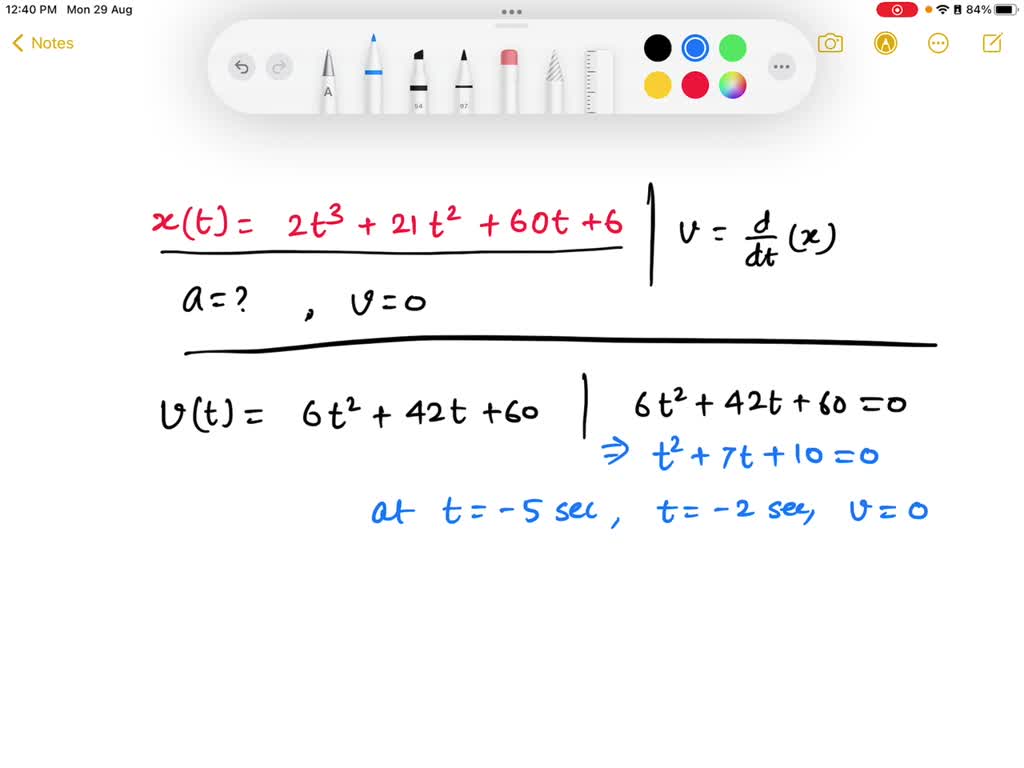 12:40 PM Mon 29 Aug
84%
Notes
A
54
97
A
x(t) = 2t³ + 21t² + 60t + 6
v = d/dt (x)
a = ? , v = 0
v(t) = 6t² + 42t + 60
6t² + 42t + 60 = 0
⇒ t² + 7t + 10 = 0
at t = -5 sec, t = -2 sec, v = 0